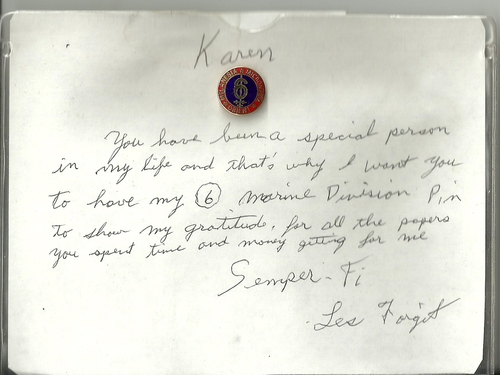 Karen
6
You have been a special person
in my life and that's why I want you
to have my 6 marine Division Pin
to show my gratitude, for all the papers
you spent time and money getting for me
Semper-Fi
Les Forgit